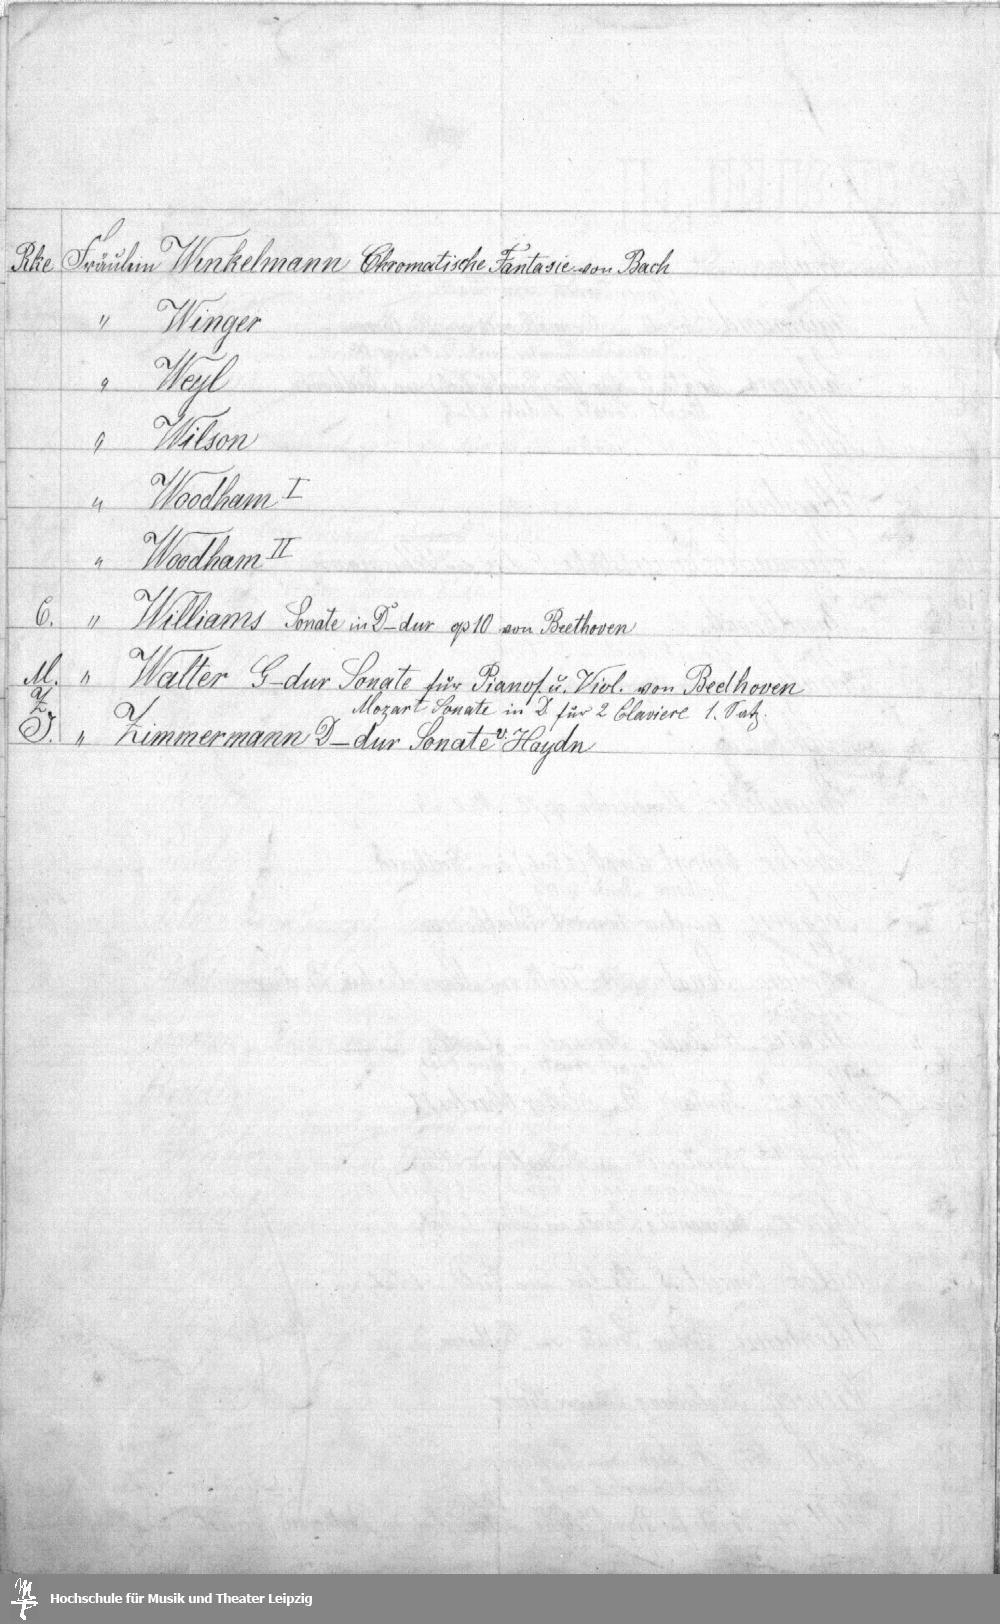 Rke Fräulein Winkelmann Chromatische Fantasie von Bach
" Winger
" Weyl
" Wilson
" Woodham I
" Woodham II
C. " Williams Sonate in D-dur op 10 von Beethoven
M. " Walter G-dur Sonate für Pianof. u. Viol. von Beethoven
Z. Mozart Sonate in D für 2 Claviere 1. Satz.
J. " Zimmermann D-dur Sonate v. Haydn
Hochschule für Musik und Theater Leipzig